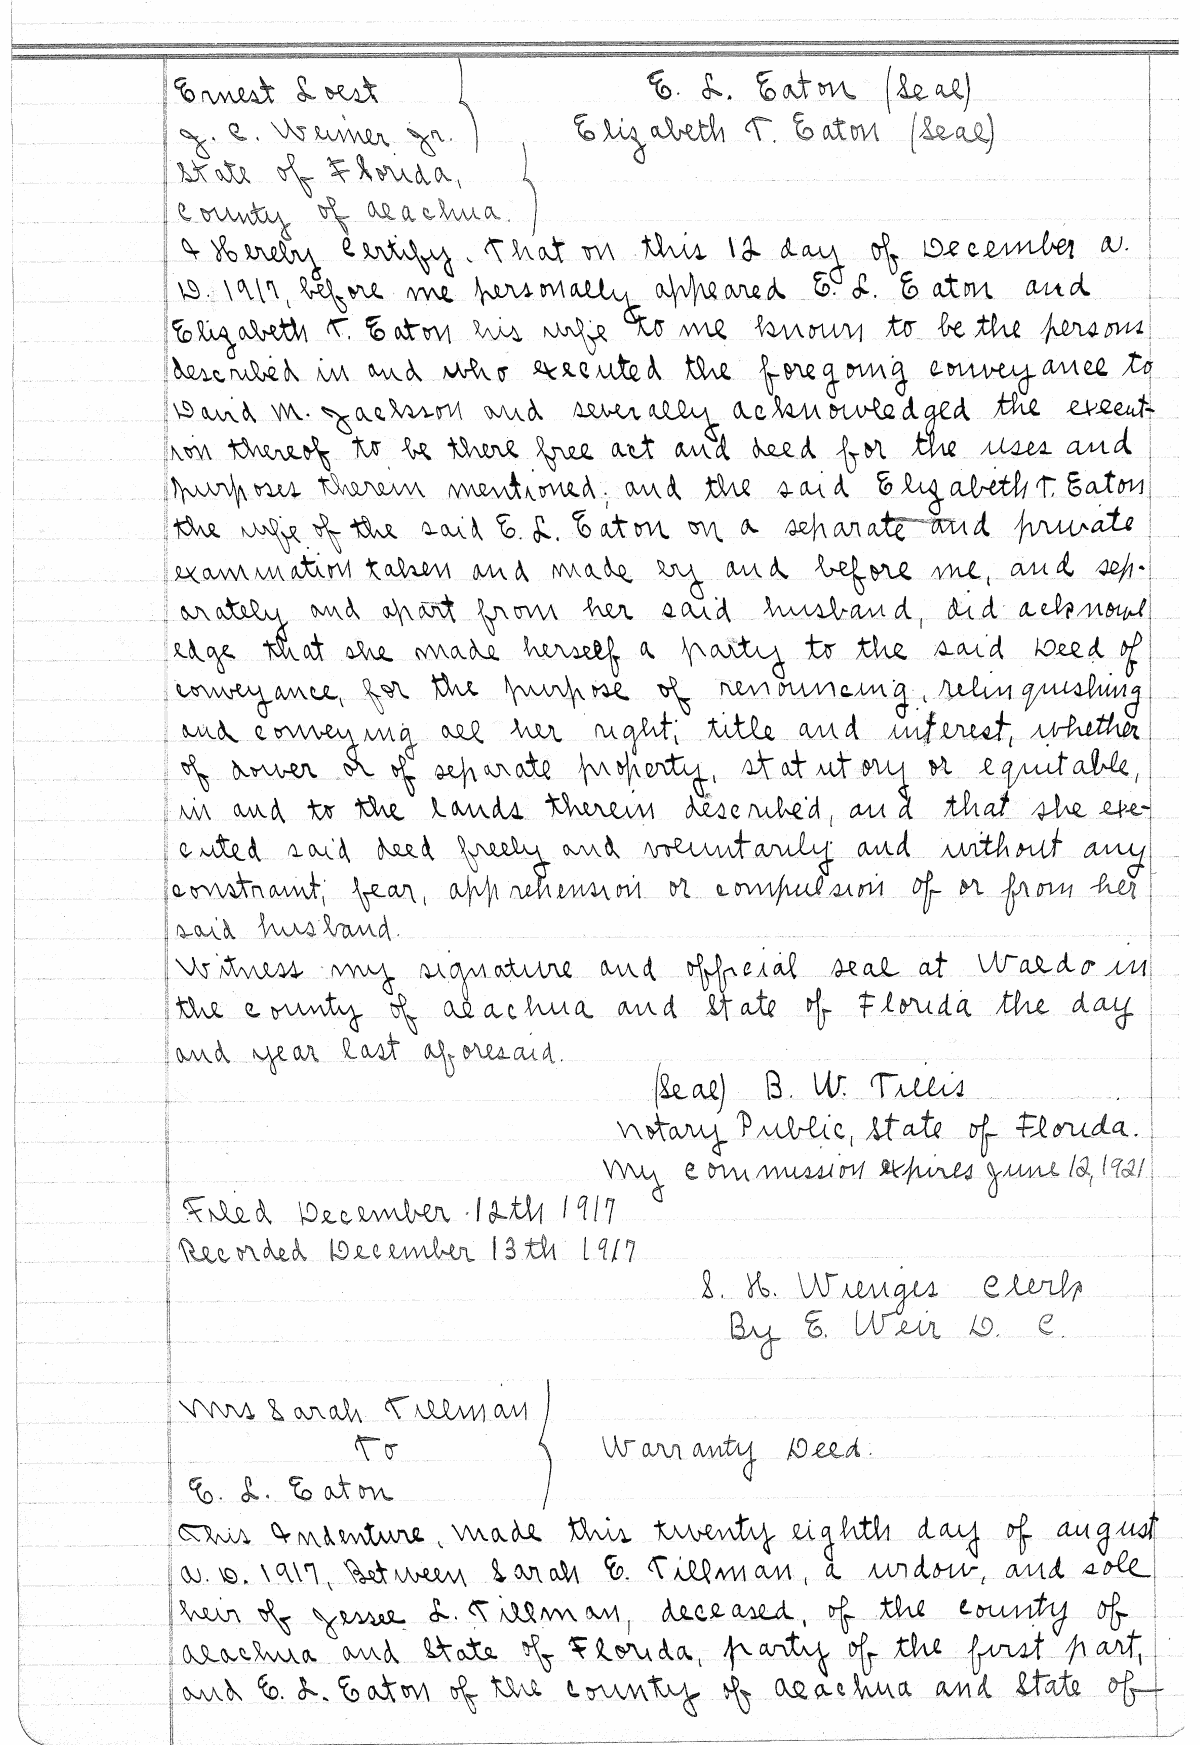 Ernest Loest
J. C. Weimer Jr.
E. L. Eaton (Seal)
Elizabeth T. Eaton (Seal)
State of Florida,
County of Alachua.
I Hereby Certify. That on this 12 day of December A.
D. 1917, before me personally appeared E. L. Eaton and
Elizabeth T. Eaton his wife to me known to be the persons
described in and who executed the foregoing conveyance to
David M. Jackson and severally acknowledged the execut-
ion thereof to be there free act and deed for the uses and
purposes therein mentioned; and the said Elizabeth T. Eaton
the wife of the said E. L. Eaton on a separate and private
examination taken and made by and before me, and sep-
arately and apart from her said husband, did acknowl
edge that she made herself a party to the said Deed of
conveyance, for the purpose of renouncing, relinquishing
and conveying all her right, title and interest, whether
of dower or of separate property, statutory or equitable,
in and to the lands therein described, and that she exe-
cuted said deed freely and voluntarily and without any
constraint, fear, apprehension or compulsion of or from her
said husband.
Witness my signature and official seal at Waldo in
the County of Alachua and State of Florida the day
and year last aforesaid.
(Seal) B. W. Tillis
Notary Public, State of Florida.
My commission expires June 12, 1921
Filed December 12th 1917
Recorded December 13th 1917
S. H. Wienges Clerk
By E. Weir D. C.
Mrs Sarah Tillman
To
E. L. Eaton
Warranty Deed.
This Indenture, made this twenty eighth day of August
A. D. 1917, Between Sarah E. Tillman, a widow, and sole
heir of Jessee L. Tillman, deceased, of the County of
Alachua and State of Florida, party of the first part,
and E. L. Eaton of the County of Alachua and State of